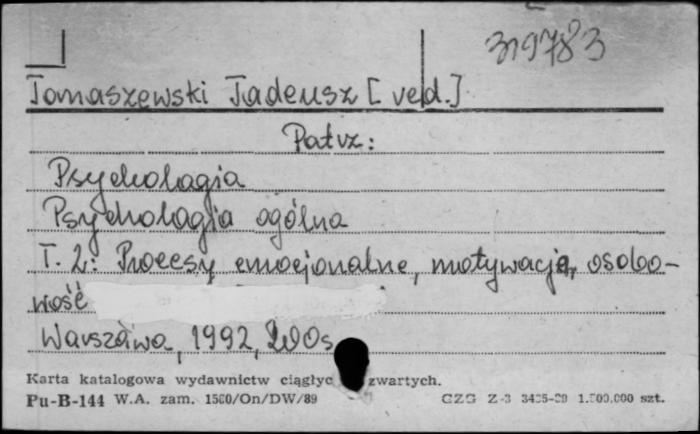 319783
Tomaszewski Tadeusz [red.]
Patrz:
Psychologia
Psychologia ogólna
T. 2: Procesy emocjonalne, motywacja, osobo-
wość
Warszawa, 1992, 200s
Karta katalogowa wydawnictw ciągłyc zwartych.
Pu-B-144 W.A. zam. 1560/On/DW/89 CZG Z-3 3435-89 1.500.000 szt.